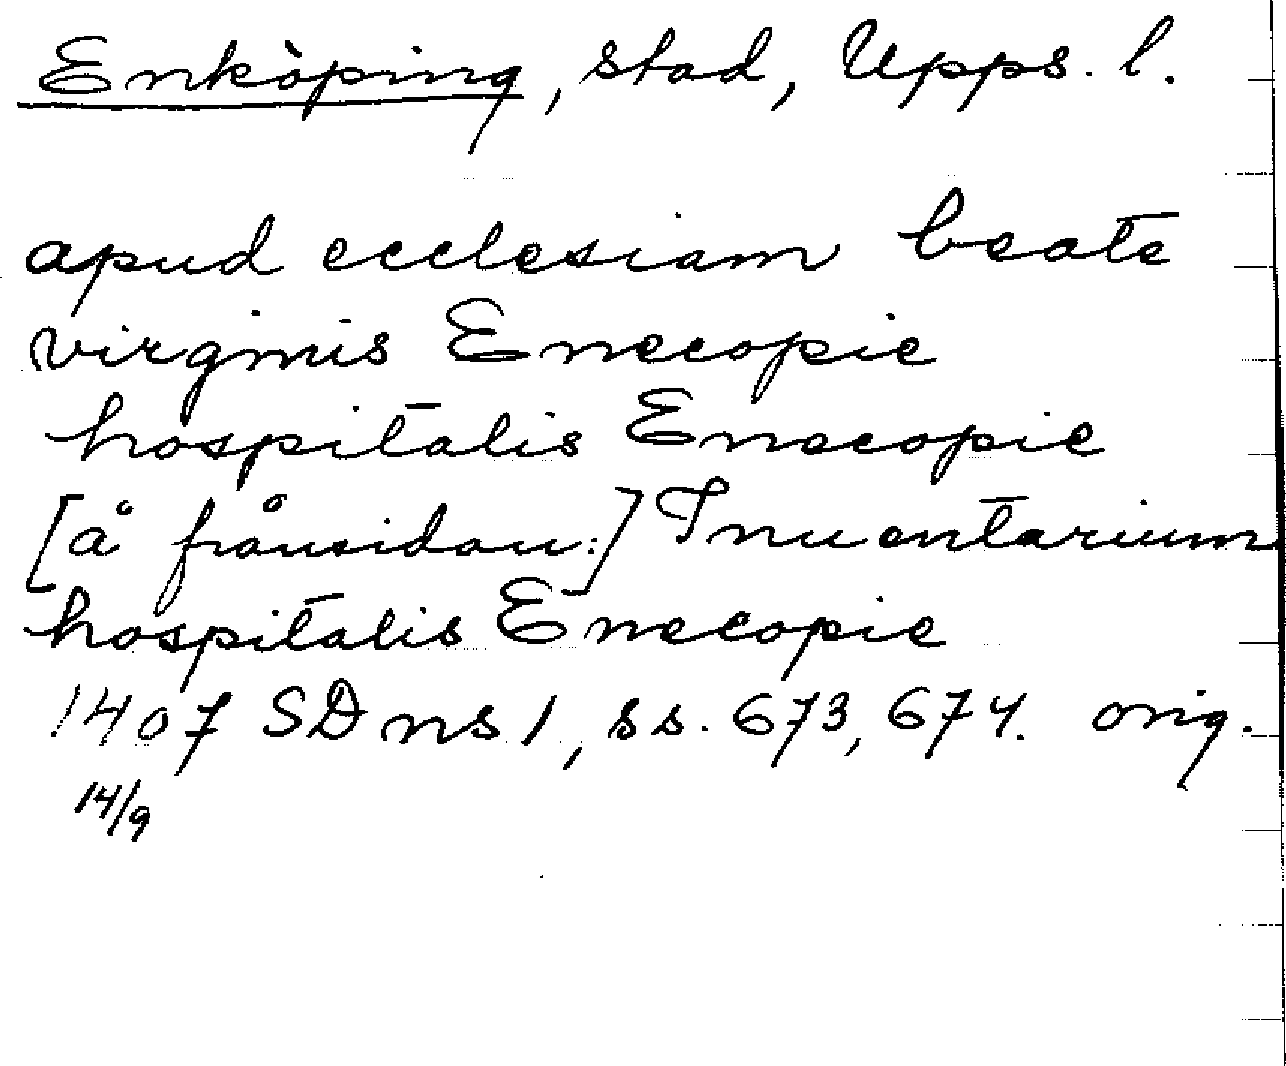 Enköping, stad, Upps. l.
apud ecclesiam beate
virginis Enecopie
hospitalis Enecopie
[å frånsidan:] Inuentarium
hospitalis Enecopie
1407 SD ns 1, ss. 673, 674. orig.
14/9